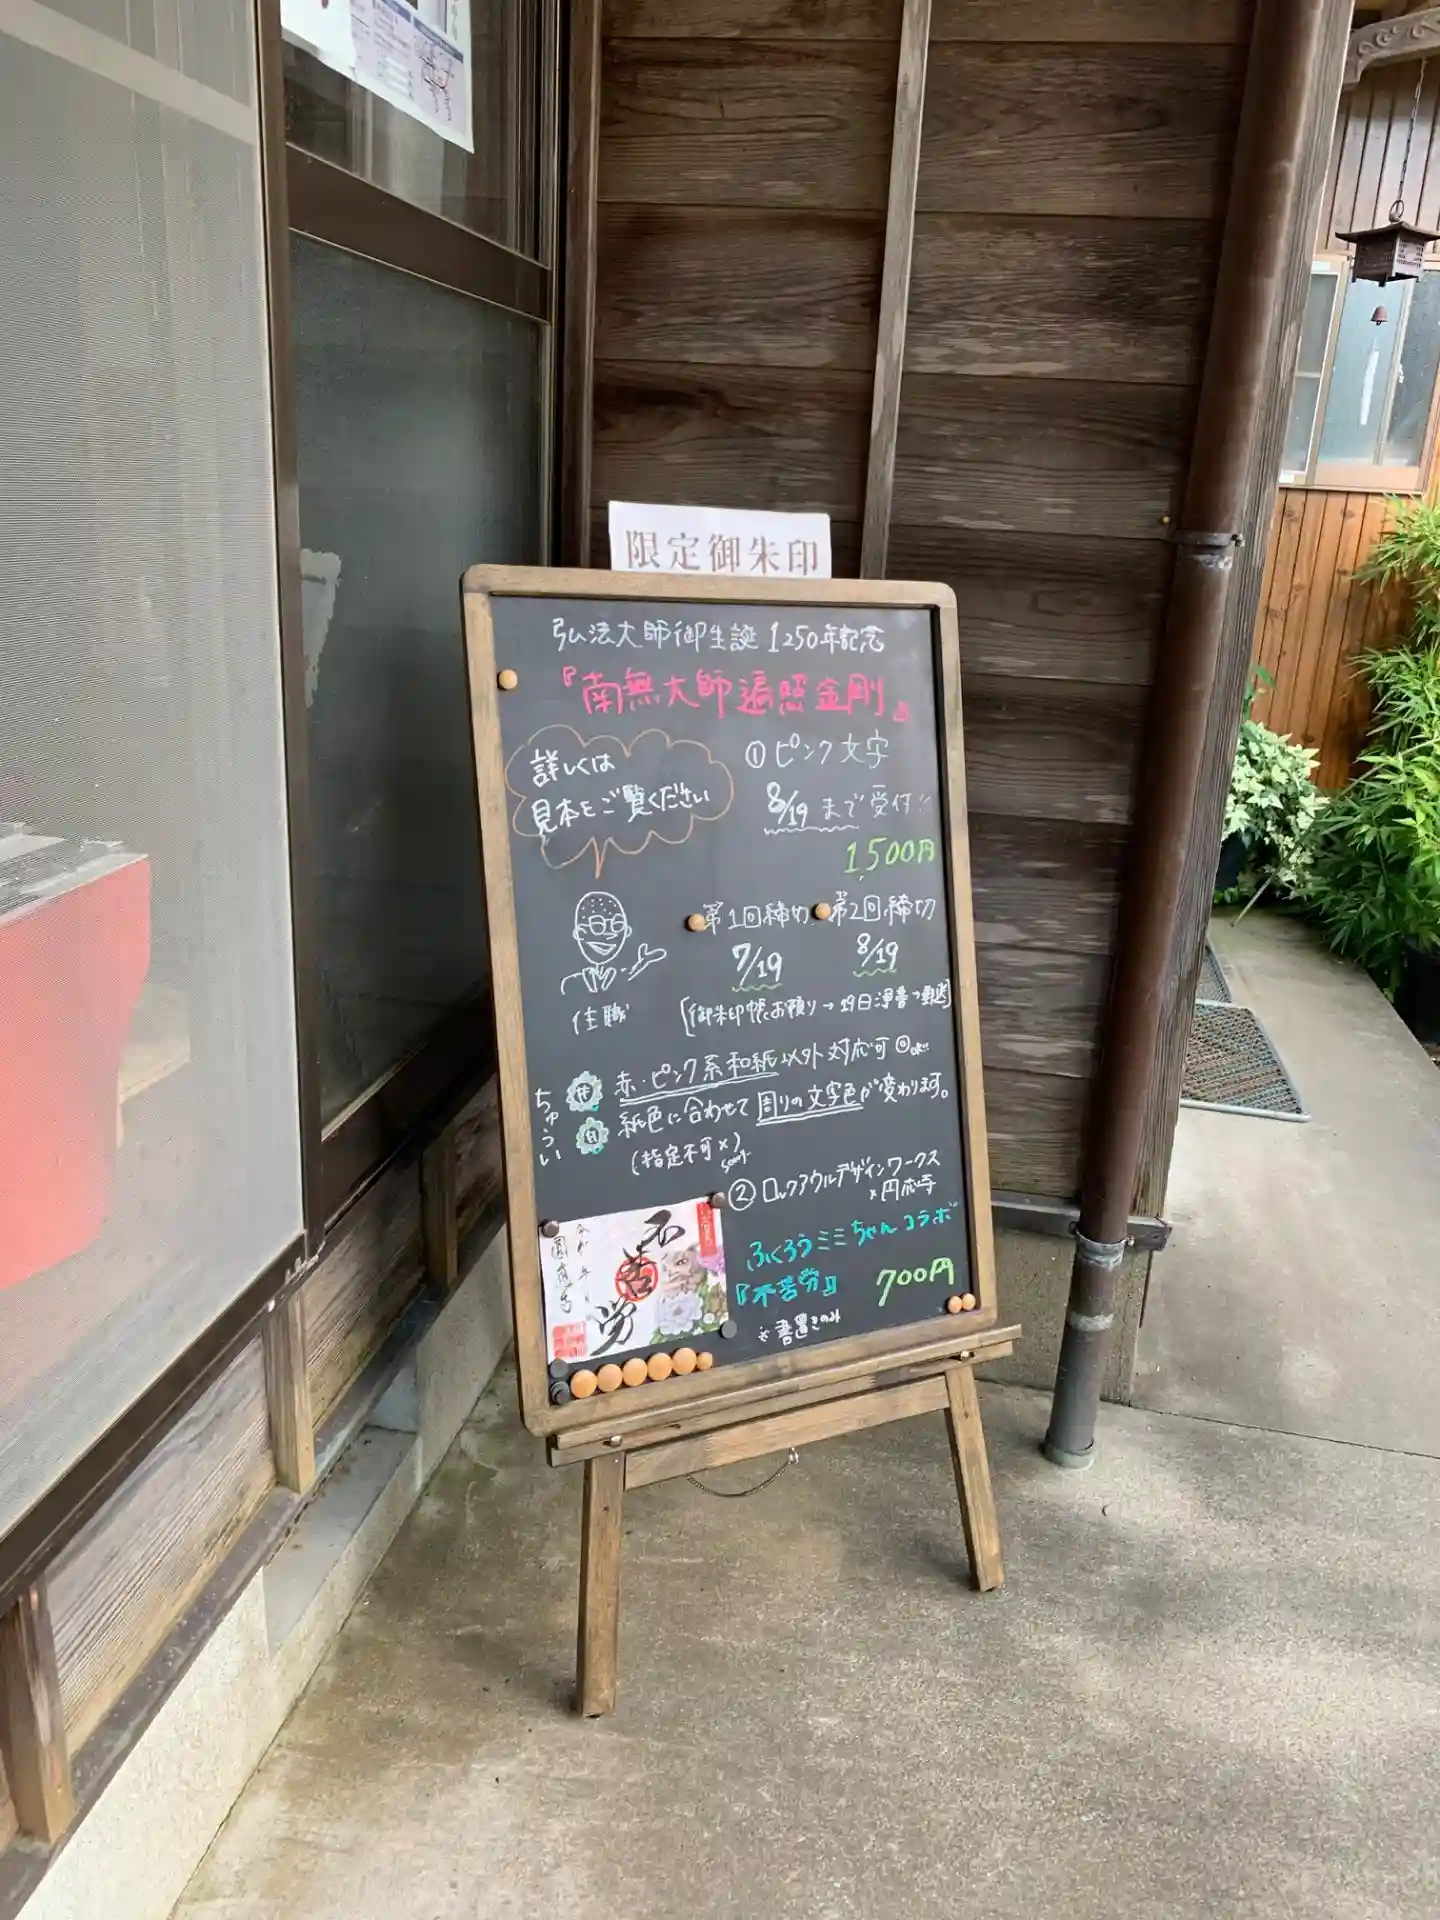 限定御朱印
弘法大師御生誕1250年記念
『南無大師遍照金剛』
詳しくは
見本をご覧ください
①ピンク文字
8/19まで受付!!
1,500円
住職
第1回締切
7/19
第2回締切
8/19
[御朱印帳お預り→19日浄書→郵送]
ちゅうい
赤・ピンク系和紙以外対応可◎ok!!
紙色に合わせて周りの文字色が変わります。
(指定不可×)
sorry
②ロックアウルデザインワークス
×円応寺
ふくろうミミちゃんコラボ
『不苦労』
700円
※書置きのみ
不苦労